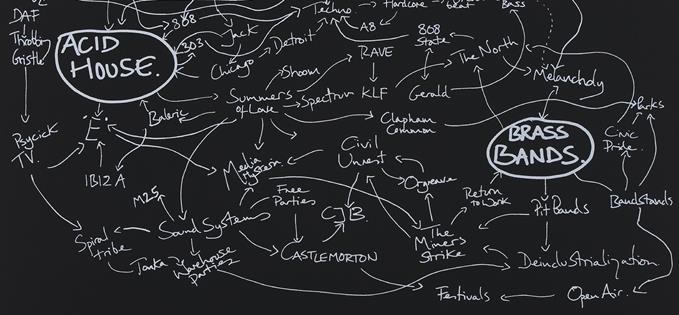 DAF
Throbbing
Gristle
808
303
Jack
Chicago
Detroit
Techno
Hardcore
beat
Bass
A8
808
State
RAVE
The North
ACID
HOUSE.
Shoom
Summers
of Love
Spectrum
KLF
Gerald
Melancholy
Baleric
Clapham
Common
Parks
Psycick
TV
'E'.
IBIZA
Media
Hysteria
Civil
Unrest
BRASS
BANDS.
Civic
Pride
M25
Free
Parties
CJB.
Orgreave
Return
to Work
Pit Bands
Bandstands
Spiral
tribe
Sound Systems
CASTLEMORTON
The
Miners
Strike
Tonka
Warehouse
parties
Deindustrialization
Festivals
Open Air.